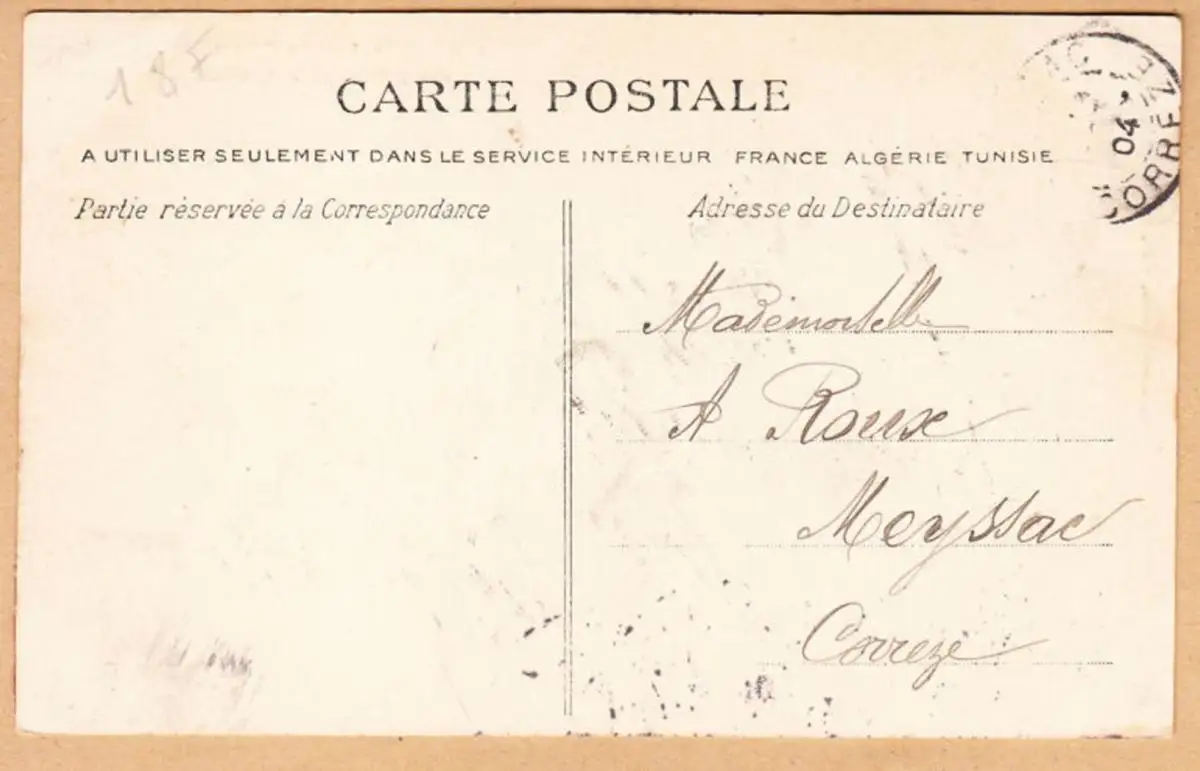 18 F
CARTE POSTALE
A UTILISER SEULEMENT DANS LE SERVICE INTÉRIEUR FRANCE ALGÉRIE TUNISIE
Partie réservée à la Correspondance
Adresse du Destinataire
Mademoiselle
A Roux
Meyssac
Corrèze
04
CORREZE